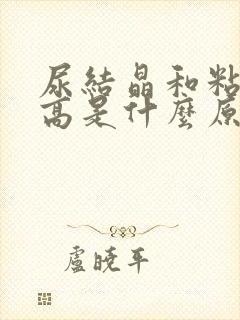 尿結晶和粘
高是什麼原
盧曉平